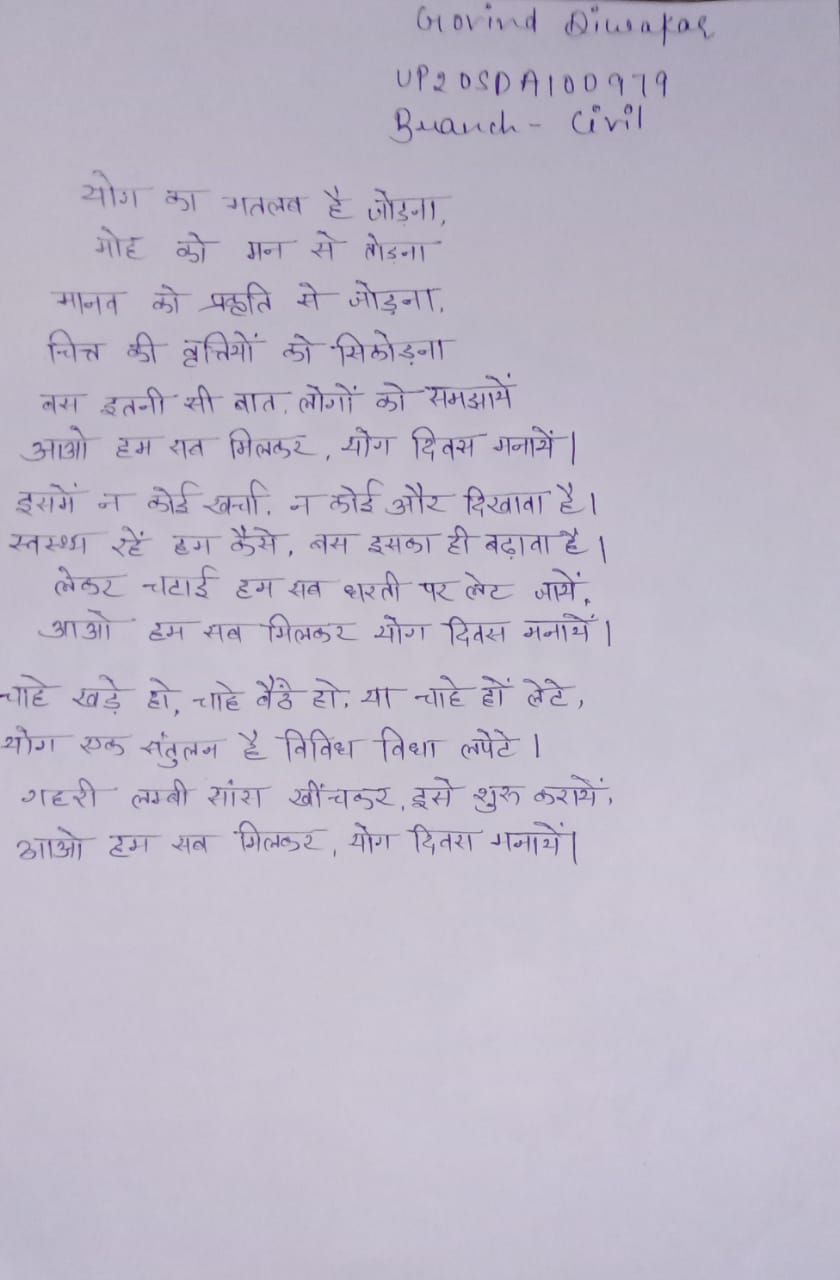 Govind Diwakar
UP20SDA100979
Branch - Civil
योग का मतलब है जोड़ना,
मोह को मन से तोड़ना
मानव को प्रकृति से जोड़ना,
चित्त की वृत्तियों को सिकोड़ना
बस इतनी सी बात, लोगों को समझायें
आओ हम सब मिलकर, योग दिवस मनायें।
इसमें न कोई खर्चा, न कोई और दिखावा है।
स्वस्थ रहें हम कैसे, बस इसका ही बढ़ावा है।
लेकर चटाई हम सब धरती पर लेट जायें,
आओ हम सब मिलकर योग दिवस मनायें।
चाहे खड़े हो, चाहे बैठे हो, या चाहे हों लेटे,
योग एक संतुलन है विविध विधा लपेटे।
गहरी लम्बी सांस खींचकर, इसे शुरू करायें,
आओ हम सब मिलकर, योग दिवस मनायें।